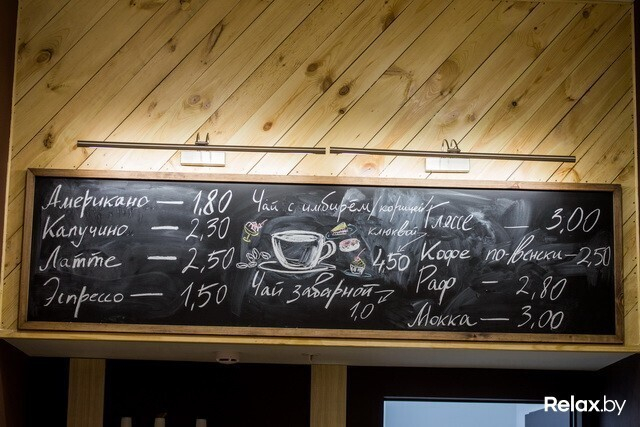 Американо — 1,80
Капучино — 2,30
Латте — 2,50
Эспрессо — 1,50
Чай с имбирём, корицей
клюквой
4,50
Чай забарной
1,0
Глясе — 3,00
Кофе по-венски — 2,50
Раф — 2,80
Мокка — 3,00
Relax.by